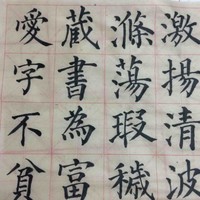 激揚清波
滌蕩瑕穢
蔵書為富
愛字不貧